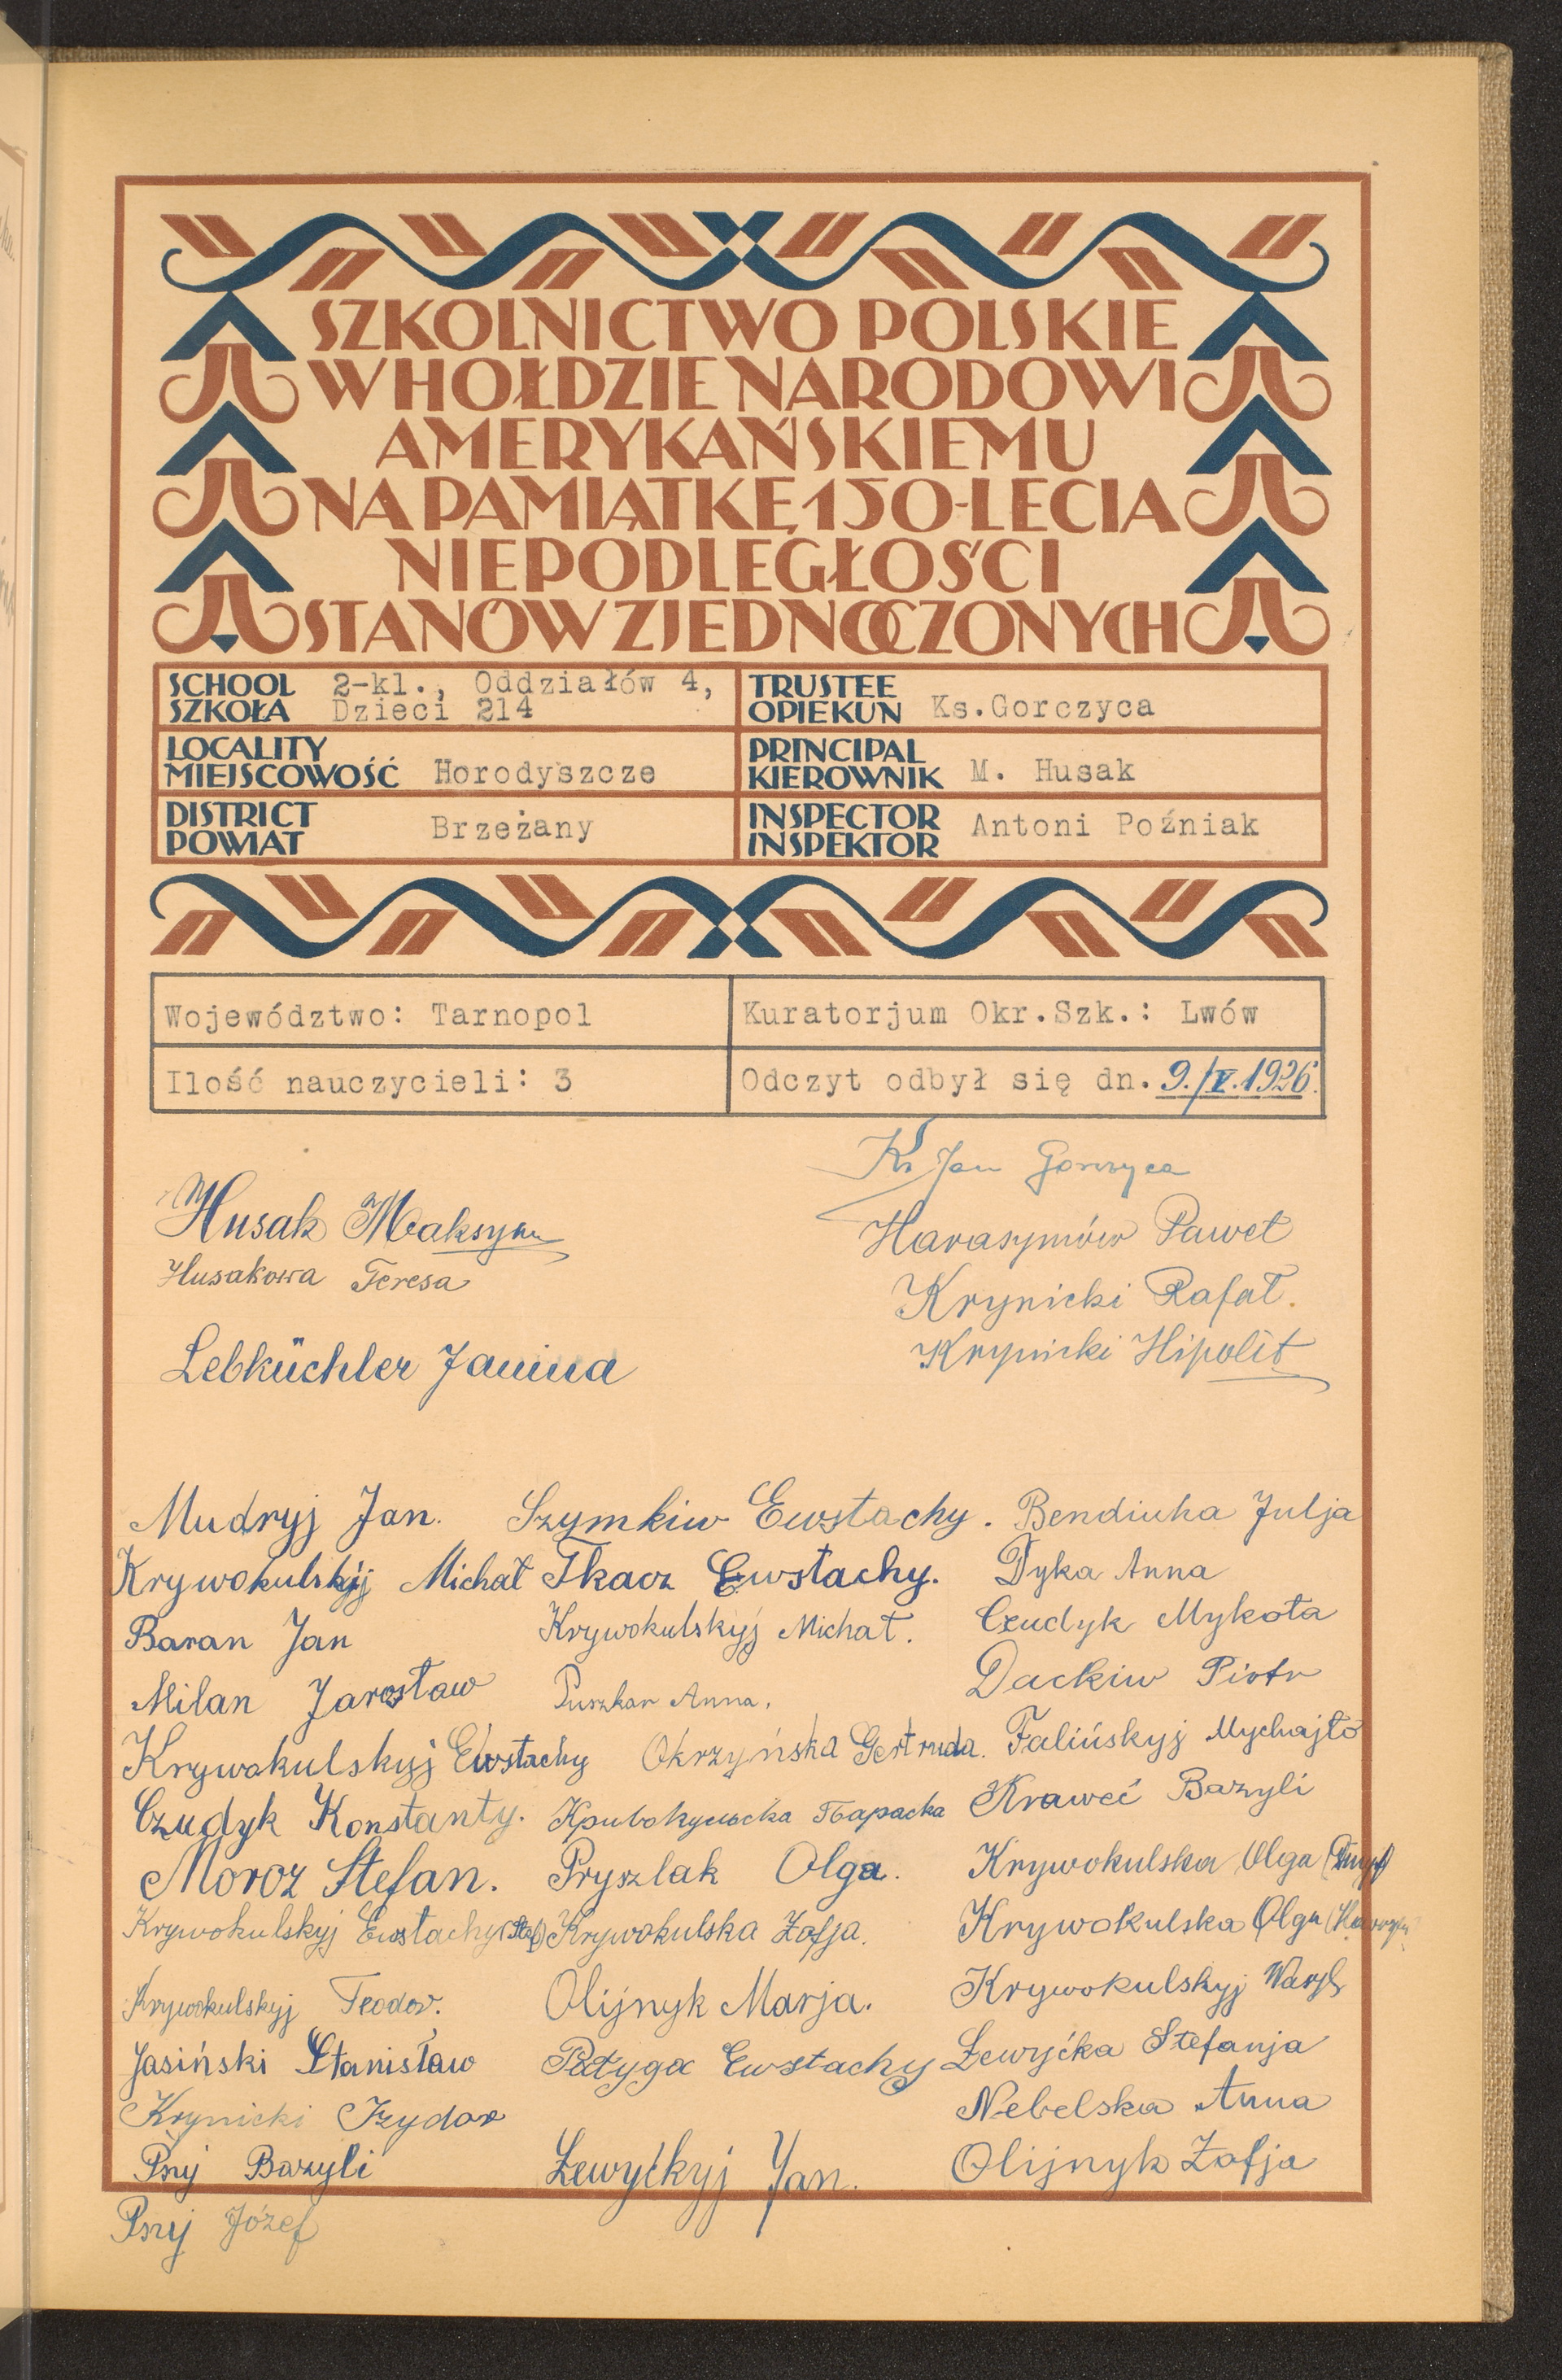 SZKOLNICTWO POLSKIE
W HOŁDZIE NARODOWI
AMERYKAŃSKIEMU
NA PAMIĄTKĘ 150-LECIA
NIEPODLEGŁOŚCI
STANÓW ZJEDNOCZONYCH
SCHOOL
SZKOŁA
2-kl., Oddziałów 4,
Dzieci 214
TRUSTEE
OPIEKUN
Ks.Gorczyca
LOCALITY
MIEJSCOWOŚĆ
Horodyszcze
PRINCIPAL
KIEROWNIK
M. Husak
DISTRICT
POWIAT
Brzeżany
INSPECTOR
INSPEKTOR
Antoni Poźniak
Województwo: Tarnopol
Kuratorjum Okr.Szk.: Lwów
Ilość nauczycieli: 3
Odczyt odbył się dn. 9./V.1926.
Husak Maksym
Husakowa Teresa
Lebküchler Janina
Ks Jan Gorczyca
Harasymów Paweł
Krynicki Rafał.
Krynicki Hipolit
Mudryj Jan.
Krywokulskyj Michał
Baran Jan
Milan Jarosław
Krywokulskyj Ewstachy
Czudyk Konstanty.
Moroz Stefan.
Krywokulskyj Ewstachy (Stef)
Krywokulskyj Teodor.
Jasiński Stanisław
Krynicki Izydor
Psyj Bazyli
Psyj Józef
Szymkiw Ewstachy.
Tkacz Ewstachy.
Krywokulskyj Michał.
Puszkar Anna.
Okrzyńska Gertruda.
Кривокульска Параска
Pryszlak Olga.
Krywokulska Zofja.
Olijnyk Marja.
Patyga Ewstachy
Lewyćkyj Jan.
Bendiuha Julja
Dyka Anna
Czudyk Mykoła
Dackiw Piotr
Falińskyj Mychajło
Kraweć Bazyli
Krywokulska Olga
Krywokulska Olga
Krywokulskyj Wasyl
Lewyćka Stefanja
Nebelska Anna
Olijnyk Zofja